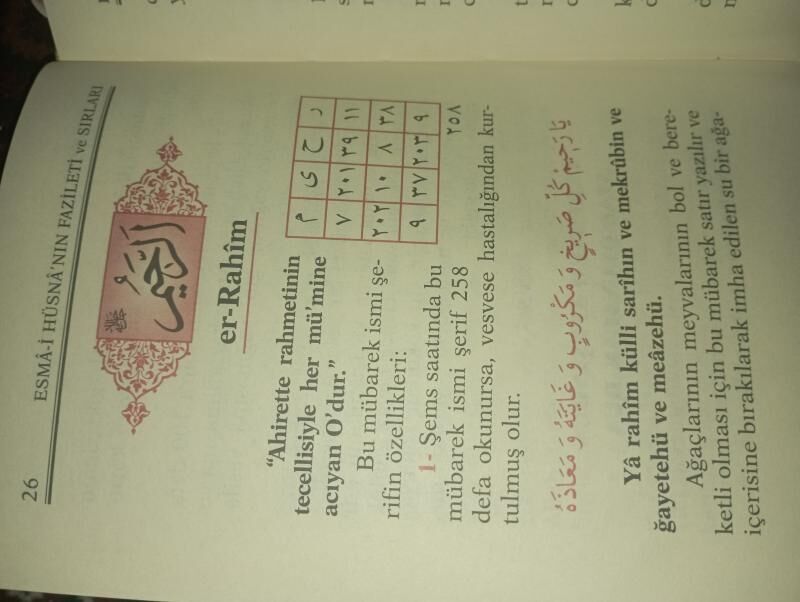 26 ESMÂ-İ HÜSNÂ'NIN FAZİLETİ ve SIRLARI
الرَّحِيمُ
er-Rahîm
"Ahirette rahmetinin
tecellisiyle her mü'mine
acıyan O'dur."
Bu mübarek ismi şe-
rifin özellikleri:
ر ح ی م
٧ ٢٠١ ٣٩ ١١
٢٠٢ ١٠ ٨ ٣٨
٩ ٣٧ ٢٠٣ ٩
٢٥٨
1- Şems saatında bu
mübarek ismi şerif 258
defa okunursa, vesvese hastalığından kur-
tulmuş olur.
يَا رَحِيمُ كُلِّ صَرِيخٍ وَ مَكْرُوبٍ وَ غَايَتَهُ وَ مَعَاذَهُ
Yâ rahîm külli sarîhın ve mekrûbin ve
ğayetehü ve meâzehü.
Ağaçlarının meyvalarının bol ve bere-
ketli olması için bu mübarek satır yazılır ve
içerisine bırakılarak imha edilen su bir ağa-